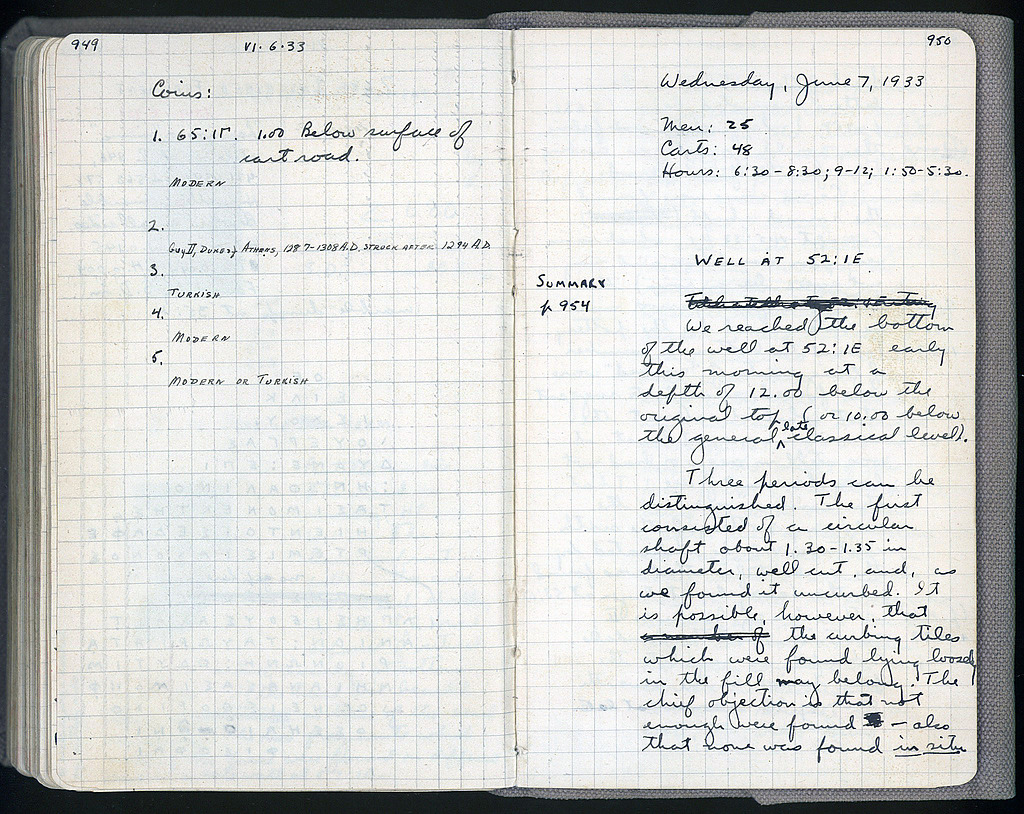 949
VI·6·33
Coins:
1. 65:ΙΓ. 1.00 Below surface of
cart road.
MODERN
2.
Guy II, Duke of Athens, 1287-1308 A.D. STRUCK AFTER 1294 A.D.
3.
TURKISH
4.
MODERN
5.
MODERN OR TURKISH
950
Wednesday, June 7, 1933
Men: 25
Carts: 48
Hours: 6:30-8:30; 9-12; 1:50-5:30.
WELL AT 52:ΙΕ
SUMMARY
p 954
We reached the bottom
of the well at 52:ΙΕ early
this morning at a
depth of 12.00 below the
original top (or 10.00 below
the general late classical level).
Three periods can be
distinguished. The first
consisted of a circular
shaft about 1.30-1.35 in
diameter, well cut, and, as
we found it uncurbed. It
is possible, however, that
a number of the curbing tiles
which were found lying loosely
in the fill may belong. The
chief objection is that not
enough were found – also
that none was found in situ